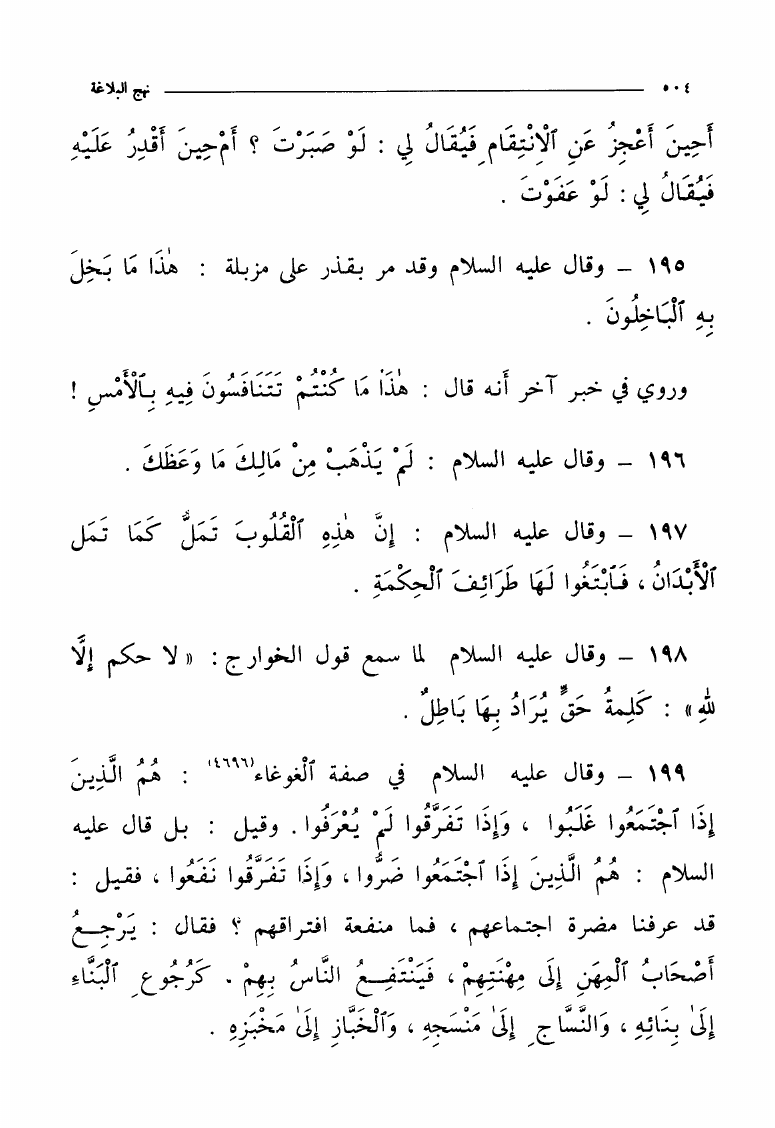 ٥٠٤ نهج البلاغة
أَحِينَ أَعْجِزُ عَنِ ٱلْاِنْتِقَامِ فَيُقَالُ لِي : لَوْ صَبَرْتَ ؟ أَمْ حِينَ أَقْدِرُ عَلَيْهِ
فَيُقَالُ لِي : لَوْ عَفَوْتَ .
١٩٥ – وقال عليه السلام وقد مر بقذر على مزبلة : هٰذَا مَا بَخِلَ
بِهِ ٱلْبَاخِلُونَ .
وروي في خبر آخر أنه قال : هٰذَا مَا كُنْتُمْ تَتَنَافَسُونَ فِيهِ بِٱلْأَمْسِ !
١٩٦ – وقال عليه السلام : لَمْ يَذْهَبْ مِنْ مَالِكَ مَا وَعَظَكَ .
١٩٧ – وقال عليه السلام : إِنَّ هٰذِهِ ٱلْقُلُوبَ تَمَلُّ كَمَا تَمَل
ٱلْأَبْدَانُ ، فَٱبْتَغُوا لَهَا طَرَائِفَ ٱلْحِكْمَةِ .
١٩٨ – وقال عليه السلام لما سمع قول الخوارج : « لا حكم إِلَّا
للهِ » : كَلِمةُ حَقٍّ يُرَادُ بِهَا بَاطِلٌ .
١٩٩ – وقال عليه السلام في صفة ٱلْغوغاء(٤٦٩٦) : هُمُ الَّذِينَ
إِذَا ٱجْتَمَعُوا غَلَبُوا ، وَإِذَا تَفَرَّقُوا لَمْ يُعْرَفُوا . وقيل : بل قال عليه
السلام : هُمُ الَّذِينَ إِذَا ٱجْتَمَعُوا ضَرُّوا ، وَإِذَا تَفَرَّقُوا نَفَعُوا ، فقيل :
قد عرفنا مضرة اجتماعهم ، فما منفعة افتراقهم ؟ فقال : يَرْجِعُ
أَصْحَابُ ٱلْمِهَنِ إِلَى مِهْنَتِهِمْ ، فَيَنْتَفِعُ النَّاسُ بِهِمْ . كَرُجُوعِ ٱلْبَنَّاء
إِلَىٰ بِنَائِهِ ، وَالنَّسَّاجِ إِلَىٰ مَنْسَجِهِ ، وَٱلْخَبَّازِ إِلَىٰ مَخْبَزِهِ .